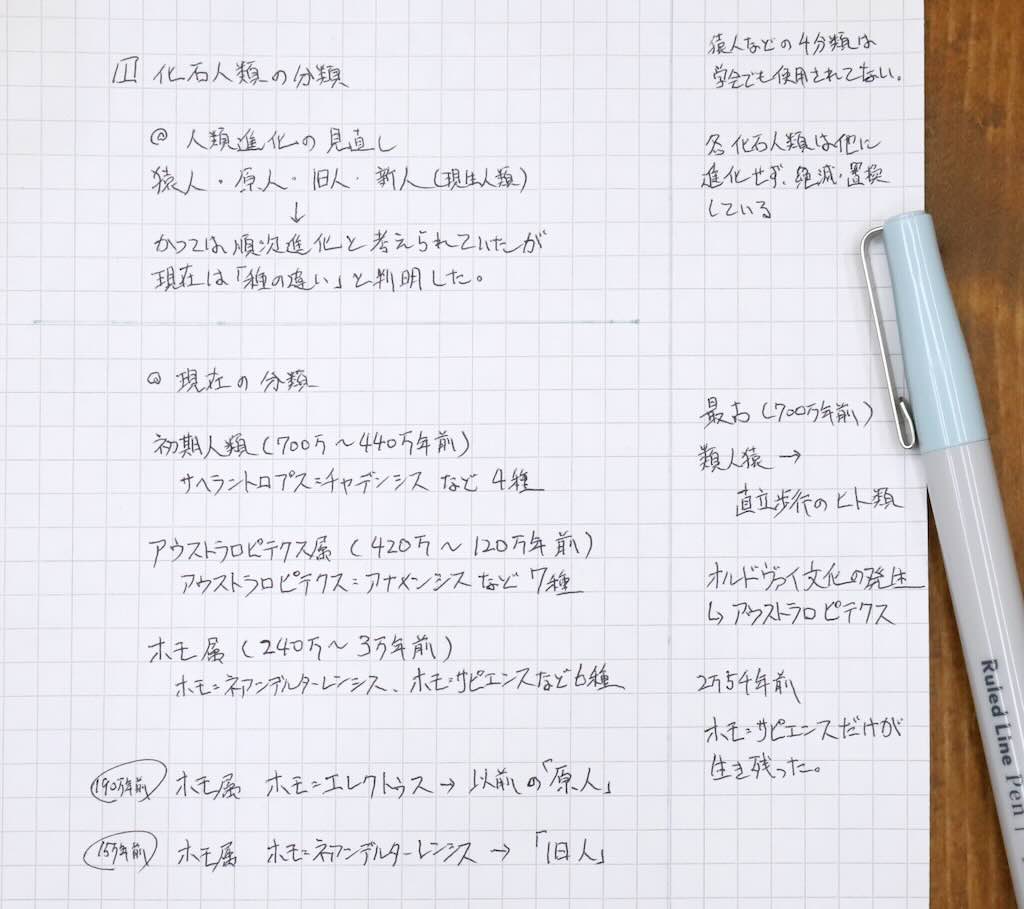 1 化石人類の分類
@ 人類進化の見直し
猿人・原人・旧人・新人(現生人類)
↓
かつては順次進化と考えられていたが
現在は「種の違い」と判明した。
@ 現在の分類
初期人類(700万〜440万年前)
サヘラントロプス=チャデンシス など 4種
アウストラロピテクス属(420万〜120万年前)
アウストラロピテクス=アナメンシス など 7種
ホモ属(240万〜3万年前)
ホモ=ネアンデルターレンシス、ホモ=サピエンスなど6種
190万年前 ホモ属 ホモ=エレクトゥス→以前の「原人」
15万年前 ホモ属 ホモ=ネアンデルターレンシス→「旧人」
猿人などの4分類は
学会でも使用されてない。
各化石人類は他に
進化せず、絶滅・置換
している
最古(700万年前)
類人猿→
直立歩行のヒト類
オルドヴァイ文化の発生
↳アウストラロピテクス
2万5千年前
ホモ=サピエンスだけが
生き残った。
Ruled Line Pen